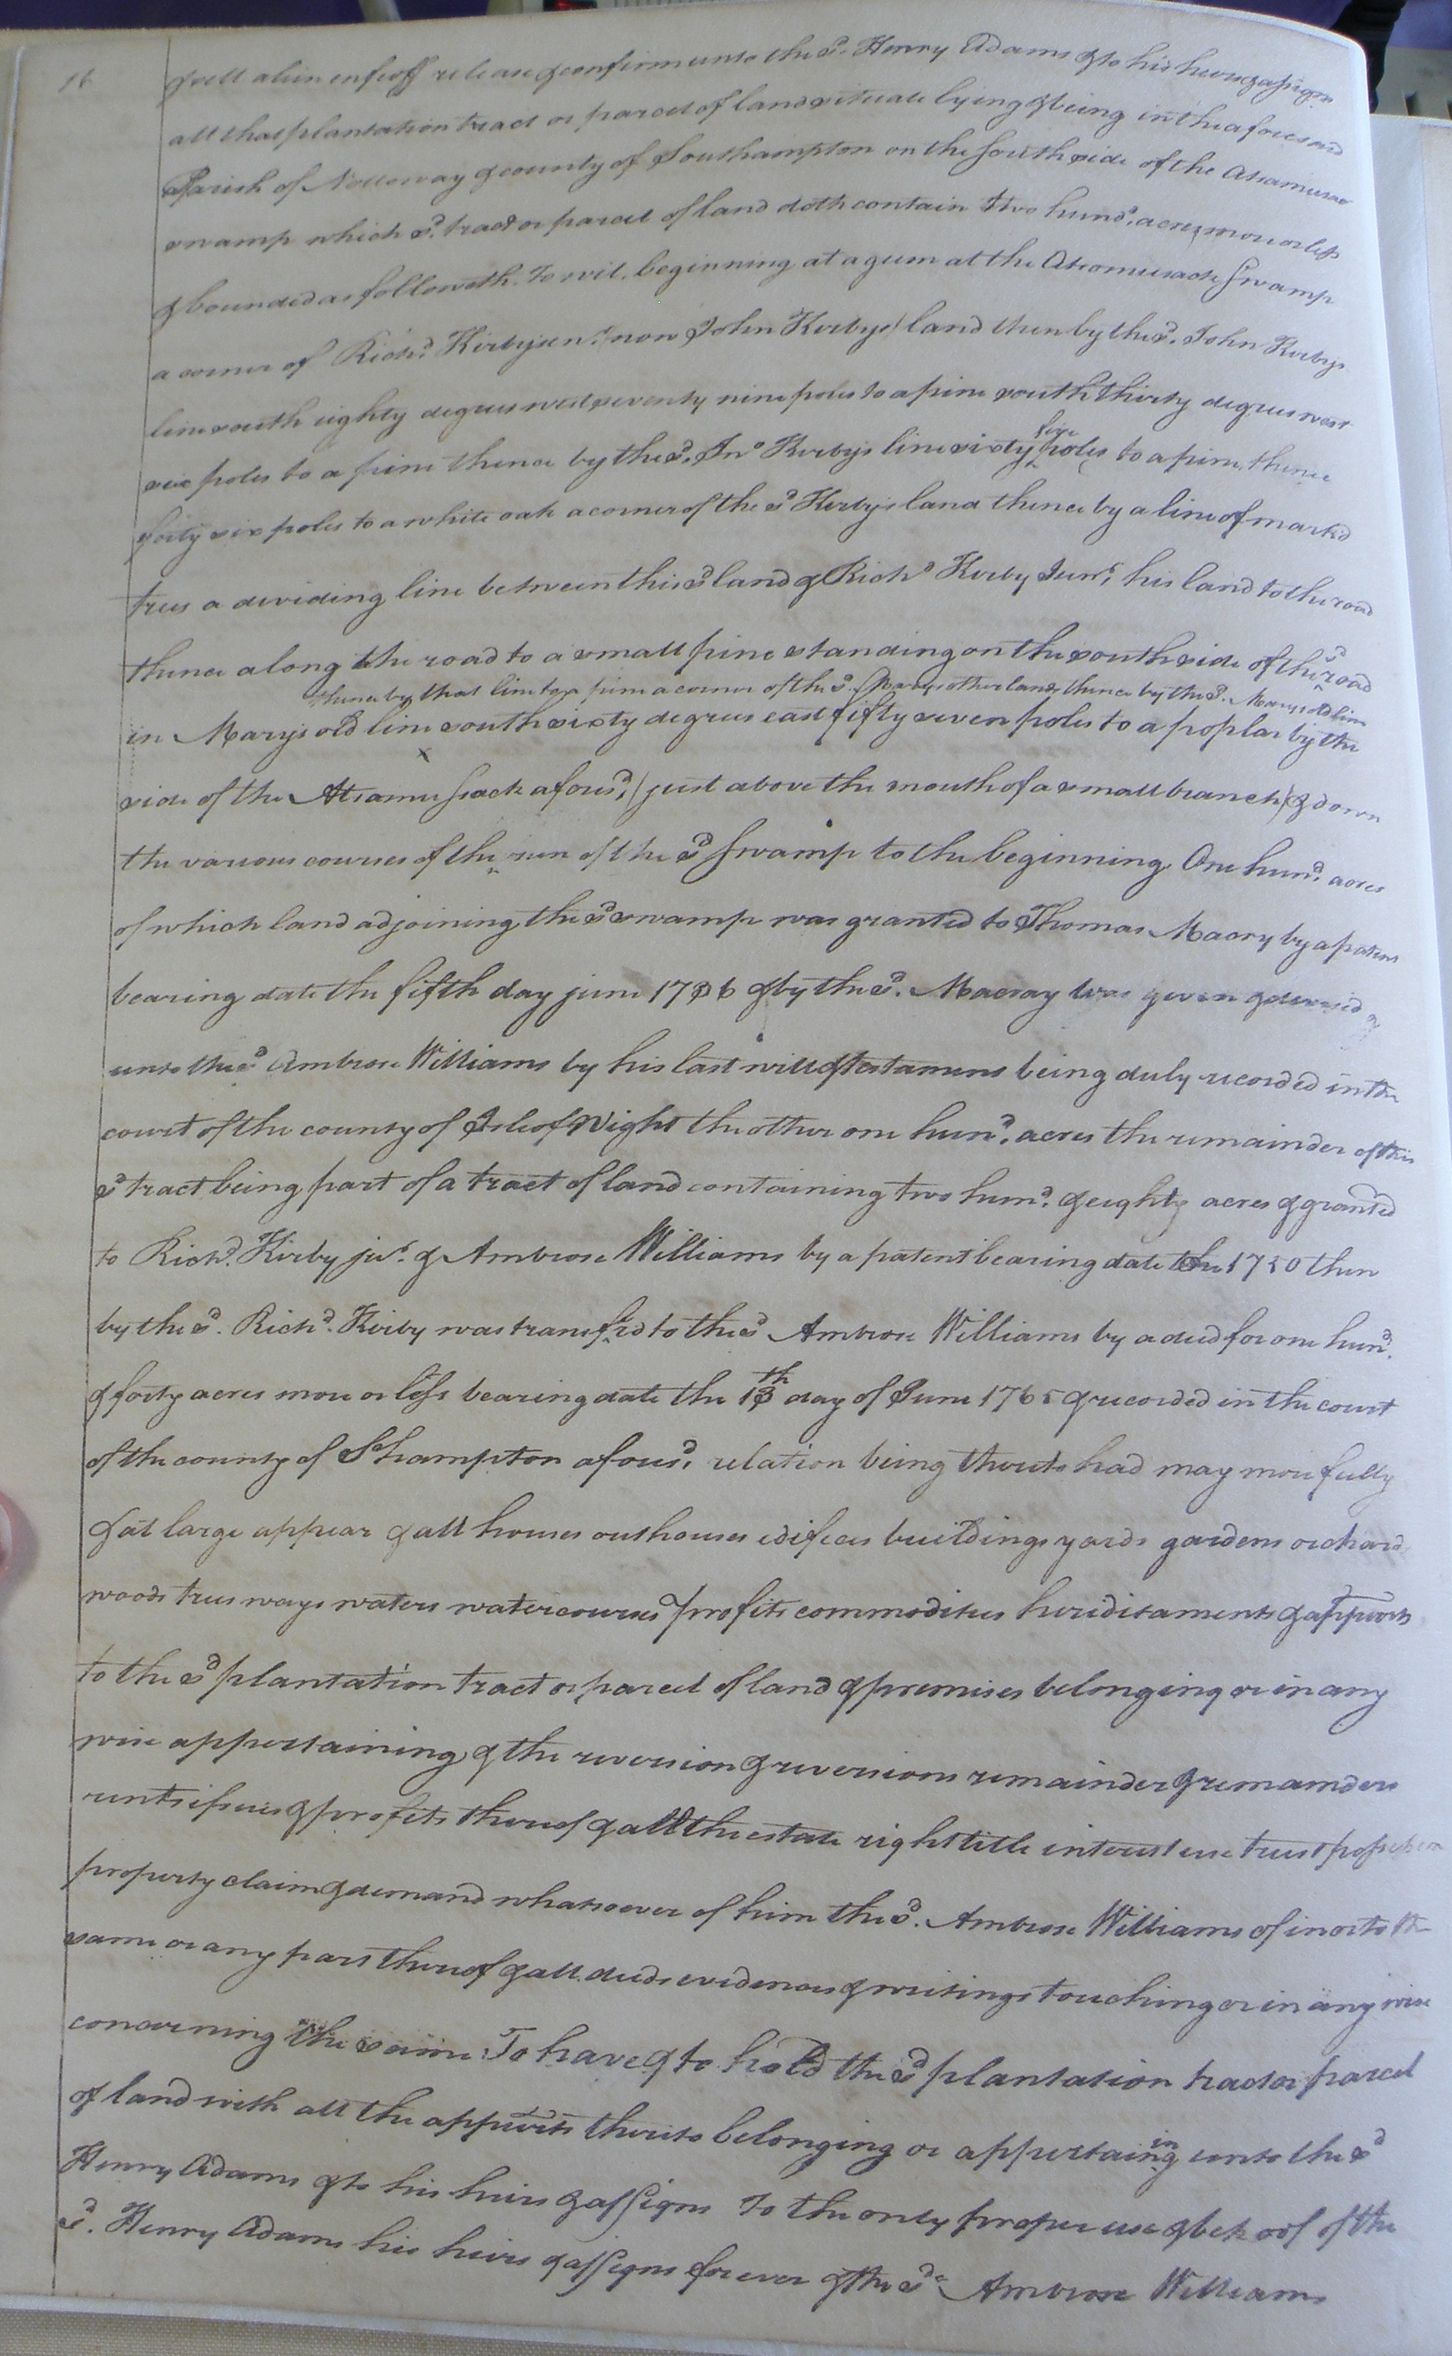 16
& sell alien enfeoff release & confirm unto the sd. Henry Adams & to his heirs & assigns
all that plantation tract or parcel of land situate lying & being in the aforesaid
Parish of Nottoway & county of Southampton on the south side of the Atsamusac
swamp which sd. tract or parcel of land doth contain two hund. acres more or less
& bounded as followeth. To wit. beginning at a gum at the Atsamusack Swamp
a corner of Richd. Kirby senr. (now John Kirbys) land then by the sd. John Kirbys
line south eighty degrees west seventy nine poles to a pine south thirty degrees west
six poles to a pine thence by the sd. Jno Kirbys line sixty five poles to a pine, thence
forty six poles to a white oak a corner of the sd Kirbys land thence by a line of markd
trees a dividing line between this sd land & Richd Kirby Junr. his land to the road
thence along the road to a small pine standing on the south side of the sd road
thence by that line to a pine a corner of the sd. Marys other land, thence by the sd. Marys old line
in Marys old line south sixty degrees east fifty seven poles to a poplar by the
side of the Atsamusack aforesd. (just above the mouth of a small branch) & down
the various courses of the run of the sd swamp to the beginning. One hund. acres
of which land adjoining the sd swamp was granted to Thomas Macry by a patent
bearing date the fifth day june 1736 & by the sd. Macray was given & devised
unto the sd Ambrose Williams by his last will & testament being duly recorded in the
court of the county of Isle of Wight the other one hund. acres the remainder of this
sd tract being part of a tract of land containing two hund. & eighty acres & granted
to Richd. Kirby jur. & Ambrose Williams by a patent bearing date the 1750 then
by the sd. Richd. Kirby was transfrd to the sd Ambrose Williams by a deed for one hund.
& forty acres more or less bearing date the 13th day of June 1765 & recorded in the court
of the county of Shampton aforesd. relation being thereto had may more fully
& at large appear & all houses outhouses edifices buildings yards gardens orchards
woods trees ways waters watercourses profits commodities heriditaments & appurts
to the sd plantation tract or parcel of land & premises belonging or in any
wise appertaining & the reversion & reversions remainder & remainders
rents issues & profits thereof & all the estate right title interest use trust possession
property claim & demand whatsoever of him the sd. Ambrose Williams of in or to the
same or any part thereof & all deeds evidences & writings touching or in any wise
concerning the same: To have & to hold the sd plantation tract or parcel
of land with all the appurts thereto belonging or appertaining unto the sd
Henry Adams & to his heirs & assigns To the only proper use & behoof of the
sd. Henry Adams his heirs & assigns forever & the sd. Ambrose Williams